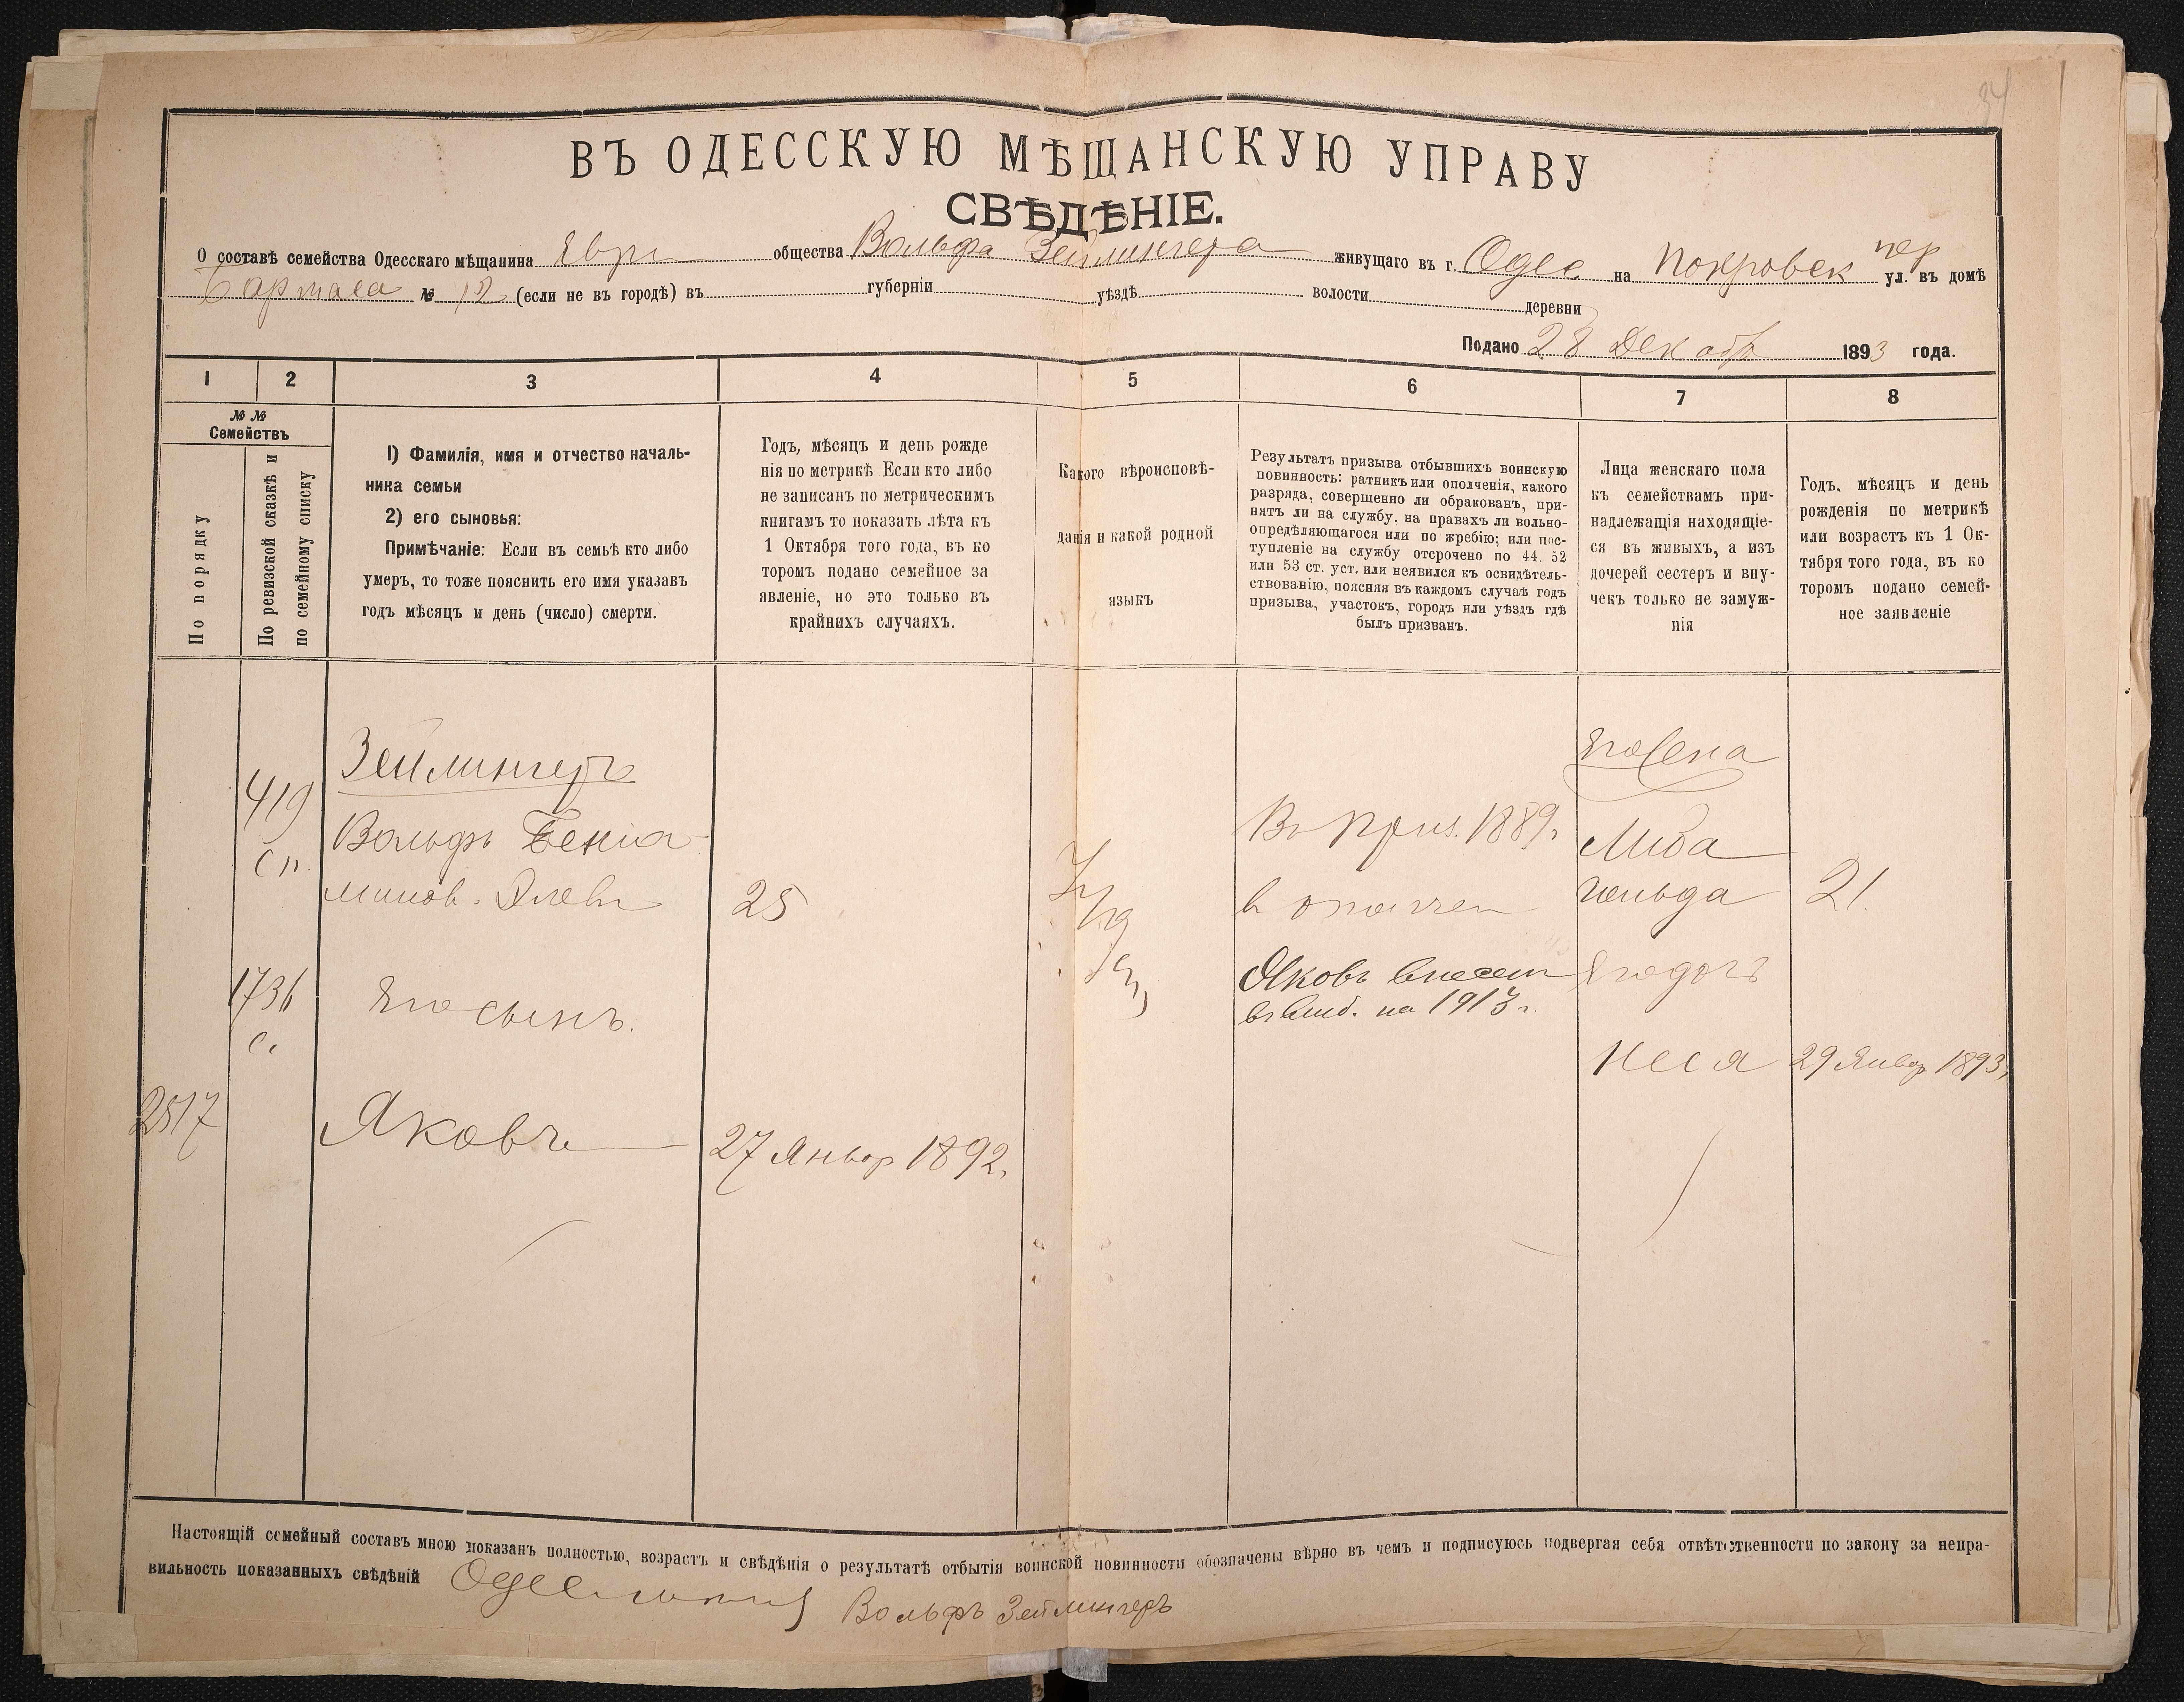 34
ВЪ ОДЕССКУЮ МѢЩАНСКУЮ УПРАВУ
СВѢДѢНІЕ.
О составѣ семейства Одесскаго мѣщанина Евр общества Вольфа Зейлингера живущаго въ г. Одес на Покровск пер ул. въ домѣ
№ 12 (если не въ городѣ) въ губерніи уѣздѣ волости деревни
Подано 28 Декабр 1893 года.
1 2 3 4 5 6 7 8
№ №
Семействъ
По порядку
По ревизской сказкѣ и
по семейному списку
1) Фамилія, имя и отчество началь-
ника семьи
2) его сыновья:
Примѣчаніе: Если въ семьѣ кто либо
умеръ, то тоже пояснить его имя указавъ
годъ мѣсяцъ и день (число) смерти.
Годъ, мѣсяцъ и день рожде
нія по метрикѣ Если кто либо
не записанъ по метрическимъ
книгамъ то показать лѣта къ
1 Октября того года, въ ко
торомъ подано семейное за
явленіе, но это только въ
крайнихъ случаяхъ.
Какого вѣроисповѣ-
данія и какой родной
языкъ
Результатъ призыва отбывшихъ воинскую
повинность: ратникъ или ополченія, какого
разряда, совершенно ли обракованъ, при-
нятъ ли на службу, на правахъ ли вольно-
опредѣляющагося или по жребію; или пос-
тупленіе на службу отсрочено по 44, 52
или 53 ст. уст. или неявился къ освидѣтель-
ствованію, поясняя въ каждомъ случаѣ годъ
призыва, участокъ, городъ или уѣздъ гдѣ
былъ призванъ.
Лица женскаго пола
къ семействамъ при-
надлежащія находящіе-
ся въ живыхъ, а изъ
дочерей сестеръ и вну-
чекъ только не замуж-
нія
Годъ, мѣсяцъ и день
рожденія по метрикѣ
или возрастъ къ 1 Ок-
тября того года, въ ко
торомъ подано семей-
ное заявленіе
419
сп.
1736
с.
2517
Зейлингеръ
Вольфъ Беніа-
минов.
25
Его сынъ.
Яковъ
27 Январ 1892.
Іуд
Въ приз. 1889.
в ополчен
Яковъ внесен
въ на 1913 г.
Его жена
Либа
Гольда
21.
Его дочь
Неся
29 Январ 1893.
Настоящій семейный составъ мною показанъ полностью, возрастъ и свѣдѣнія о результатѣ отбытія воинской повинности обозначены вѣрно въ чемъ и подписуюсь подвергая себя отвѣтственности по закону за непра-
вильность показанныхъ свѣдѣній
Вольфъ Зейлингеръ